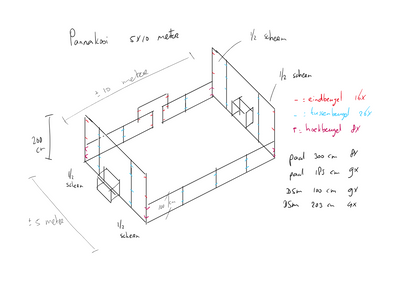 Pannakooi 5x10 meter
1/2 scherm
± 10 meter
1/2 scherm
- : eindbeugel 16x
- : tussenbeugel 26x
T : hoekbeugel 8x
200
cm
paal 300 cm 8x
paal 195 cm 9x
1/2
scherm
DSM 103 cm 9x
DSM 203 cm 4x
100 cm
± 5 meter
1/2
scherm